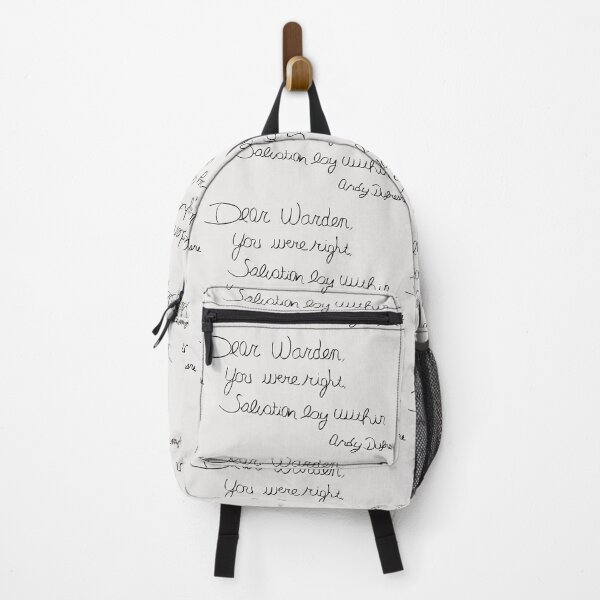 Salvation lay within
Andy Dufres
Dear Warden,
You were right.
Salvation lay within
Salvation lay within
Dear Warden,
You were right.
Salvation lay within
Andy Dufres
Dear Warden,
You were right.